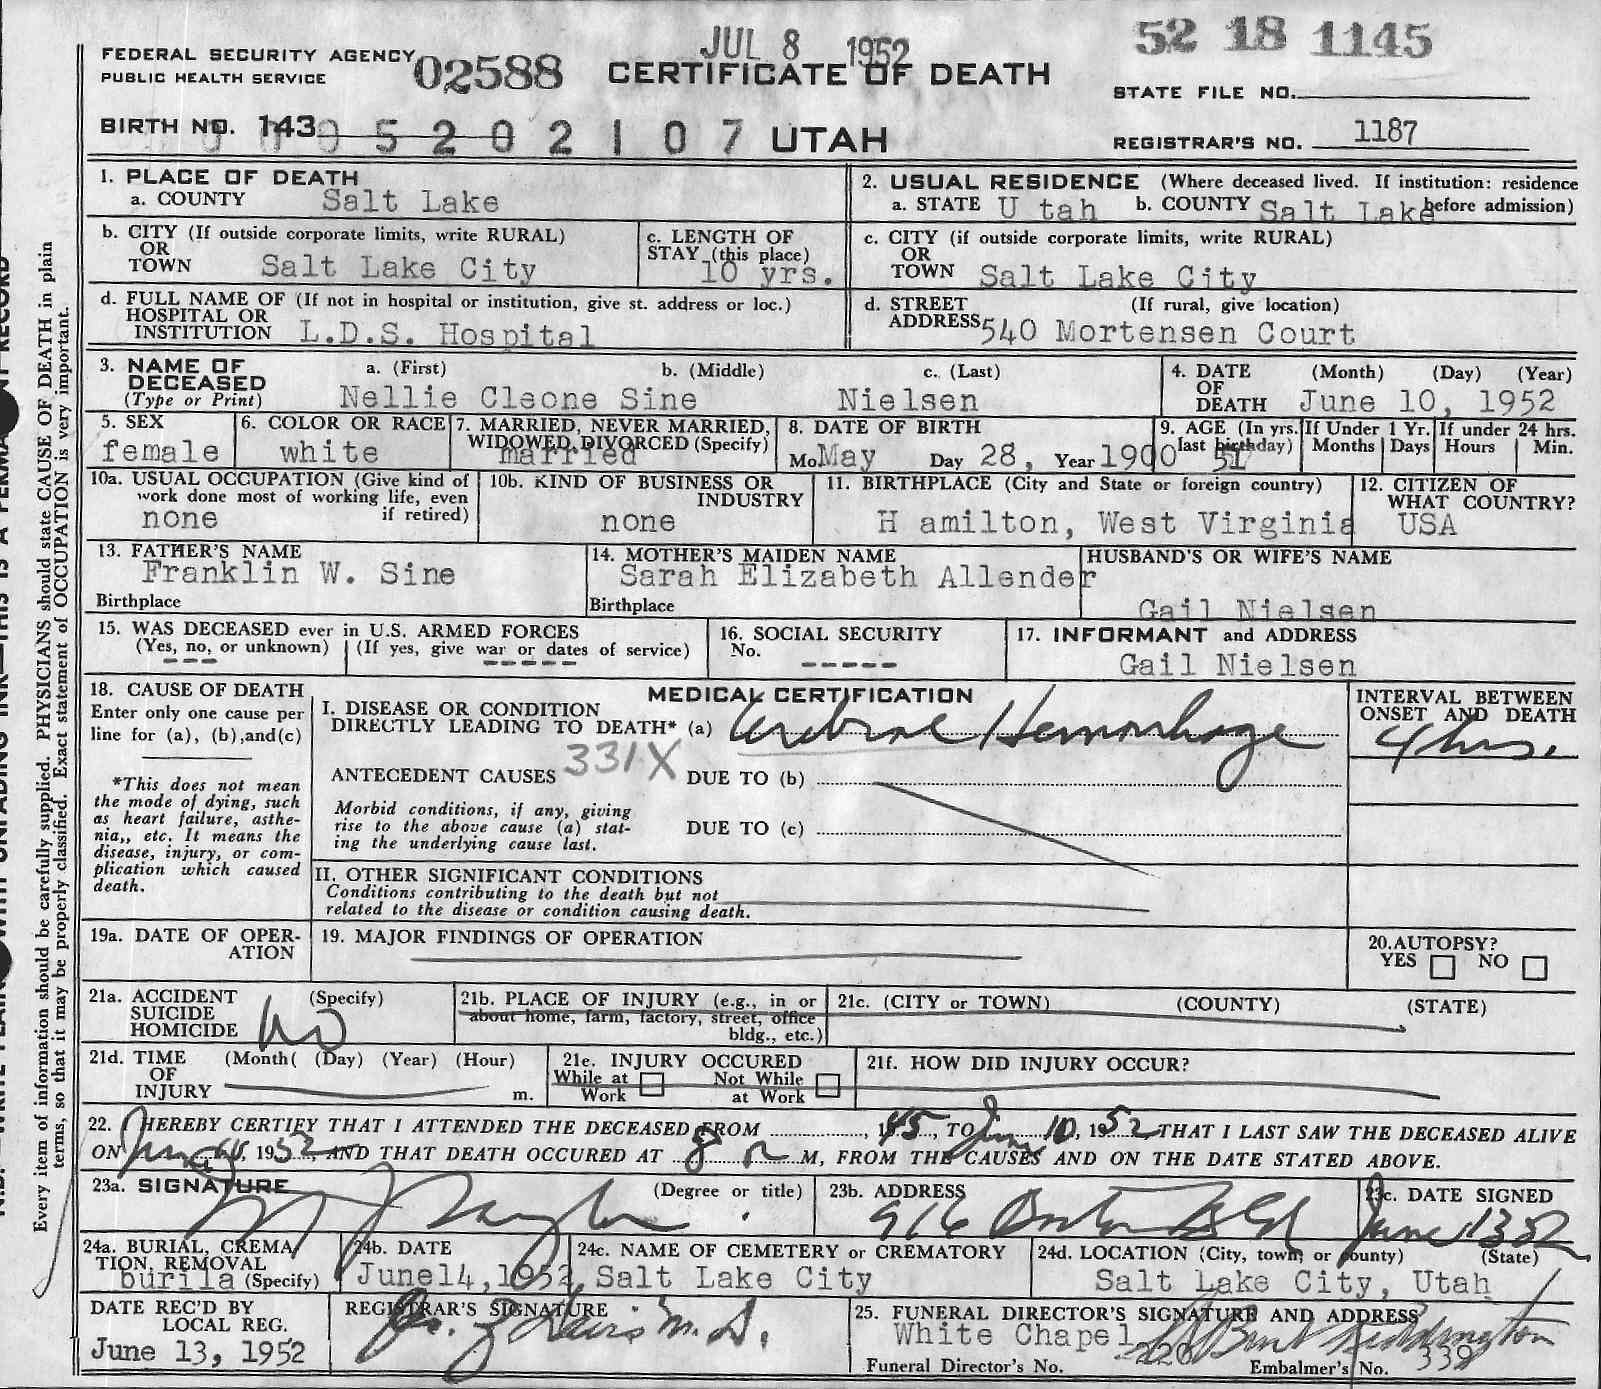 JUL 8 1952
52 18 1145
FEDERAL SECURITY AGENCY
PUBLIC HEALTH SERVICE
02588
CERTIFICATE OF DEATH
STATE FILE NO.
BIRTH NO. 143
05202107
UTAH
REGISTRAR'S NO. 1187
1. PLACE OF DEATH
a. COUNTY Salt Lake
2. USUAL RESIDENCE (Where deceased lived. If institution: residence before admission)
a. STATE U tah b. COUNTY Salt Lake
b. CITY (If outside corporate limits, write RURAL)
OR
TOWN Salt Lake City
c. LENGTH OF
STAY (this place)
10 yrs.
c. CITY (if outside corporate limits, write RURAL)
OR
TOWN Salt Lake City
d. FULL NAME OF (If not in hospital or institution, give st. address or loc.)
HOSPITAL OR
INSTITUTION L.D.S. Hospital
d. STREET (If rural, give location)
ADDRESS 540 Mortensen Court
3. NAME OF a. (First) b. (Middle) c. (Last)
DECEASED
(Type or Print) Nellie Cleone Sine Nielsen
4. DATE (Month) (Day) (Year)
OF
DEATH June 10, 1952
5. SEX
female
6. COLOR OR RACE
white
7. MARRIED, NEVER MARRIED,
WIDOWED, DIVORCED (Specify)
married
8. DATE OF BIRTH
Mo. May Day 28, Year 1900
9. AGE (In yrs.
last birthday) 51
If Under 1 Yr.
Months Days
If under 24 hrs.
Hours Min.
10a. USUAL OCCUPATION (Give kind of
work done most of working life, even
if retired)
none
10b. KIND OF BUSINESS OR
INDUSTRY
none
11. BIRTHPLACE (City and State or foreign country)
H amilton, West Virginia
12. CITIZEN OF
WHAT COUNTRY?
USA
13. FATHER'S NAME
Franklin W. Sine
Birthplace
14. MOTHER'S MAIDEN NAME
Sarah Elizabeth Allender
Birthplace
HUSBAND'S OR WIFE'S NAME
Gail Nielsen
15. WAS DECEASED ever in U.S. ARMED FORCES
(Yes, no, or unknown) (If yes, give war or dates of service)
--- -----
16. SOCIAL SECURITY
No.
-----
17. INFORMANT and ADDRESS
Gail Nielsen
18. CAUSE OF DEATH
Enter only one cause per
line for (a), (b), and (c)
*This does not mean
the mode of dying, such
as heart failure, asthe-
nia,, etc. It means the
disease, injury, or com-
plication which caused
death.
MEDICAL CERTIFICATION
I. DISEASE OR CONDITION
DIRECTLY LEADING TO DEATH* (a) Cerebral Hemorrhage
331X
ANTECEDENT CAUSES DUE TO (b)
Morbid conditions, if any, giving
rise to the above cause (a) stat-
ing the underlying cause last.
DUE TO (c)
II. OTHER SIGNIFICANT CONDITIONS
Conditions contributing to the death but not
related to the disease or condition causing death.
INTERVAL BETWEEN
ONSET AND DEATH
4 hrs.
19a. DATE OF OPER-
ATION
19. MAJOR FINDINGS OF OPERATION
20. AUTOPSY?
YES NO
21a. ACCIDENT (Specify)
SUICIDE
HOMICIDE No
21b. PLACE OF INJURY (e.g., in or
about home, farm, factory, street, office
bldg., etc.)
21c. (CITY or TOWN) (COUNTY) (STATE)
21d. TIME (Month( (Day) (Year) (Hour)
OF
INJURY m.
21e. INJURY OCCURED
While at Not While
Work at Work
21f. HOW DID INJURY OCCUR?
22. I HEREBY CERTIFY THAT I ATTENDED THE DECEASED FROM , 1945, TO June 10, 1952 THAT I LAST SAW THE DECEASED ALIVE
ON June , 1952, AND THAT DEATH OCCURED AT 8 M, FROM THE CAUSES AND ON THE DATE STATED ABOVE.
23a. SIGNATURE (Degree or title)
23b. ADDRESS
916
23c. DATE SIGNED
June 13 52
24a. BURIAL, CREMA
TION, REMOVAL
burila (Specify)
24b. DATE
June14,1952
24c. NAME OF CEMETERY or CREMATORY
Salt Lake City
24d. LOCATION (City, town, or county) (State)
Salt Lake City, Utah
DATE REC'D BY
LOCAL REG.
June 13, 1952
REGISTRAR'S SIGNATURE
M.D.
25. FUNERAL DIRECTOR'S SIGNATURE AND ADDRESS
White Chapel
Funeral Director's No. 220 Embalmer's No. 339
Every item of information should be carefully supplied. PHYSICIANS should state CAUSE OF DEATH in plain
terms, so that it may be properly classified. Exact statement of OCCUPATION is very important.